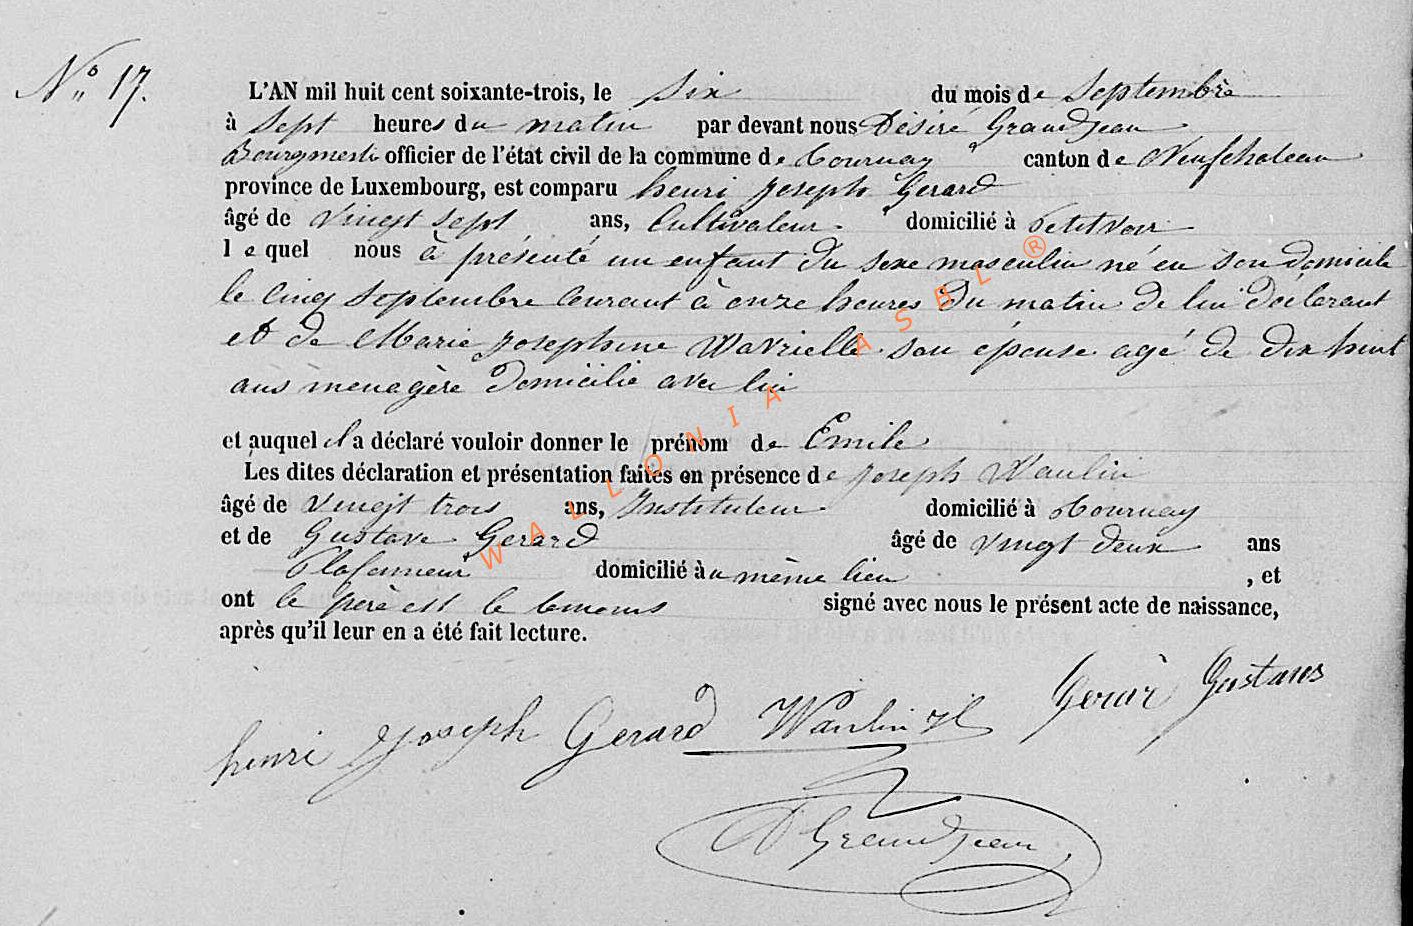 N° 17.
L'AN mil huit cent soixante-trois, le Six du mois de Septembre
à Sept heures du matin par devant nous Désiré Grandjean
Bourgmestre officier de l'état civil de la commune de Tournay canton de Neufchateau
province de Luxembourg, est comparu henri joseph Gerard
âgé de Vingt Sept ans, Cultivateur domicilié à Petitvoir
le quel nous à présenté un enfant du sexe masculin né en son domicile
le Cinq Septembre Courant à onze heures du matin de lui déclarant
et de Marie josephine Wavrielle son épouse agé de dix huit
ans menagère domicilié avec lui
et auquel il a déclaré vouloir donner le prénom de Emile
Les dites déclaration et présentation faites en présence de joseph Waulin
âgé de Vingt trois ans, Instituteur domicilié à Tournay
et de Gustave Gerard âgé de Vingt deux ans
Plafonneur domicilié au même lieu , et
ont le père est le temoins signé avec nous le présent acte de naissance,
après qu'il leur en a été fait lecture.
henri joseph Gerard Waulin Gerar Gustaves
D Grandjean
WALLONIA ASBL ®